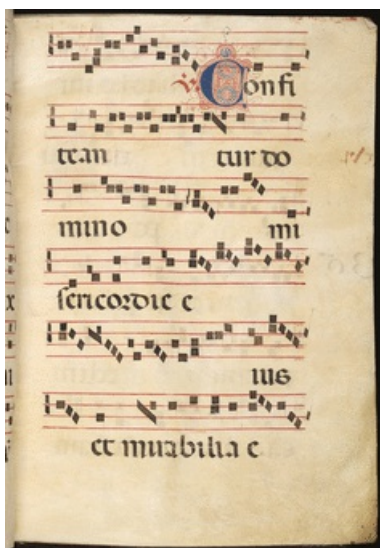 V. Confi
tean tur do
mino mi
sericordie e
ius
et mirabilia e